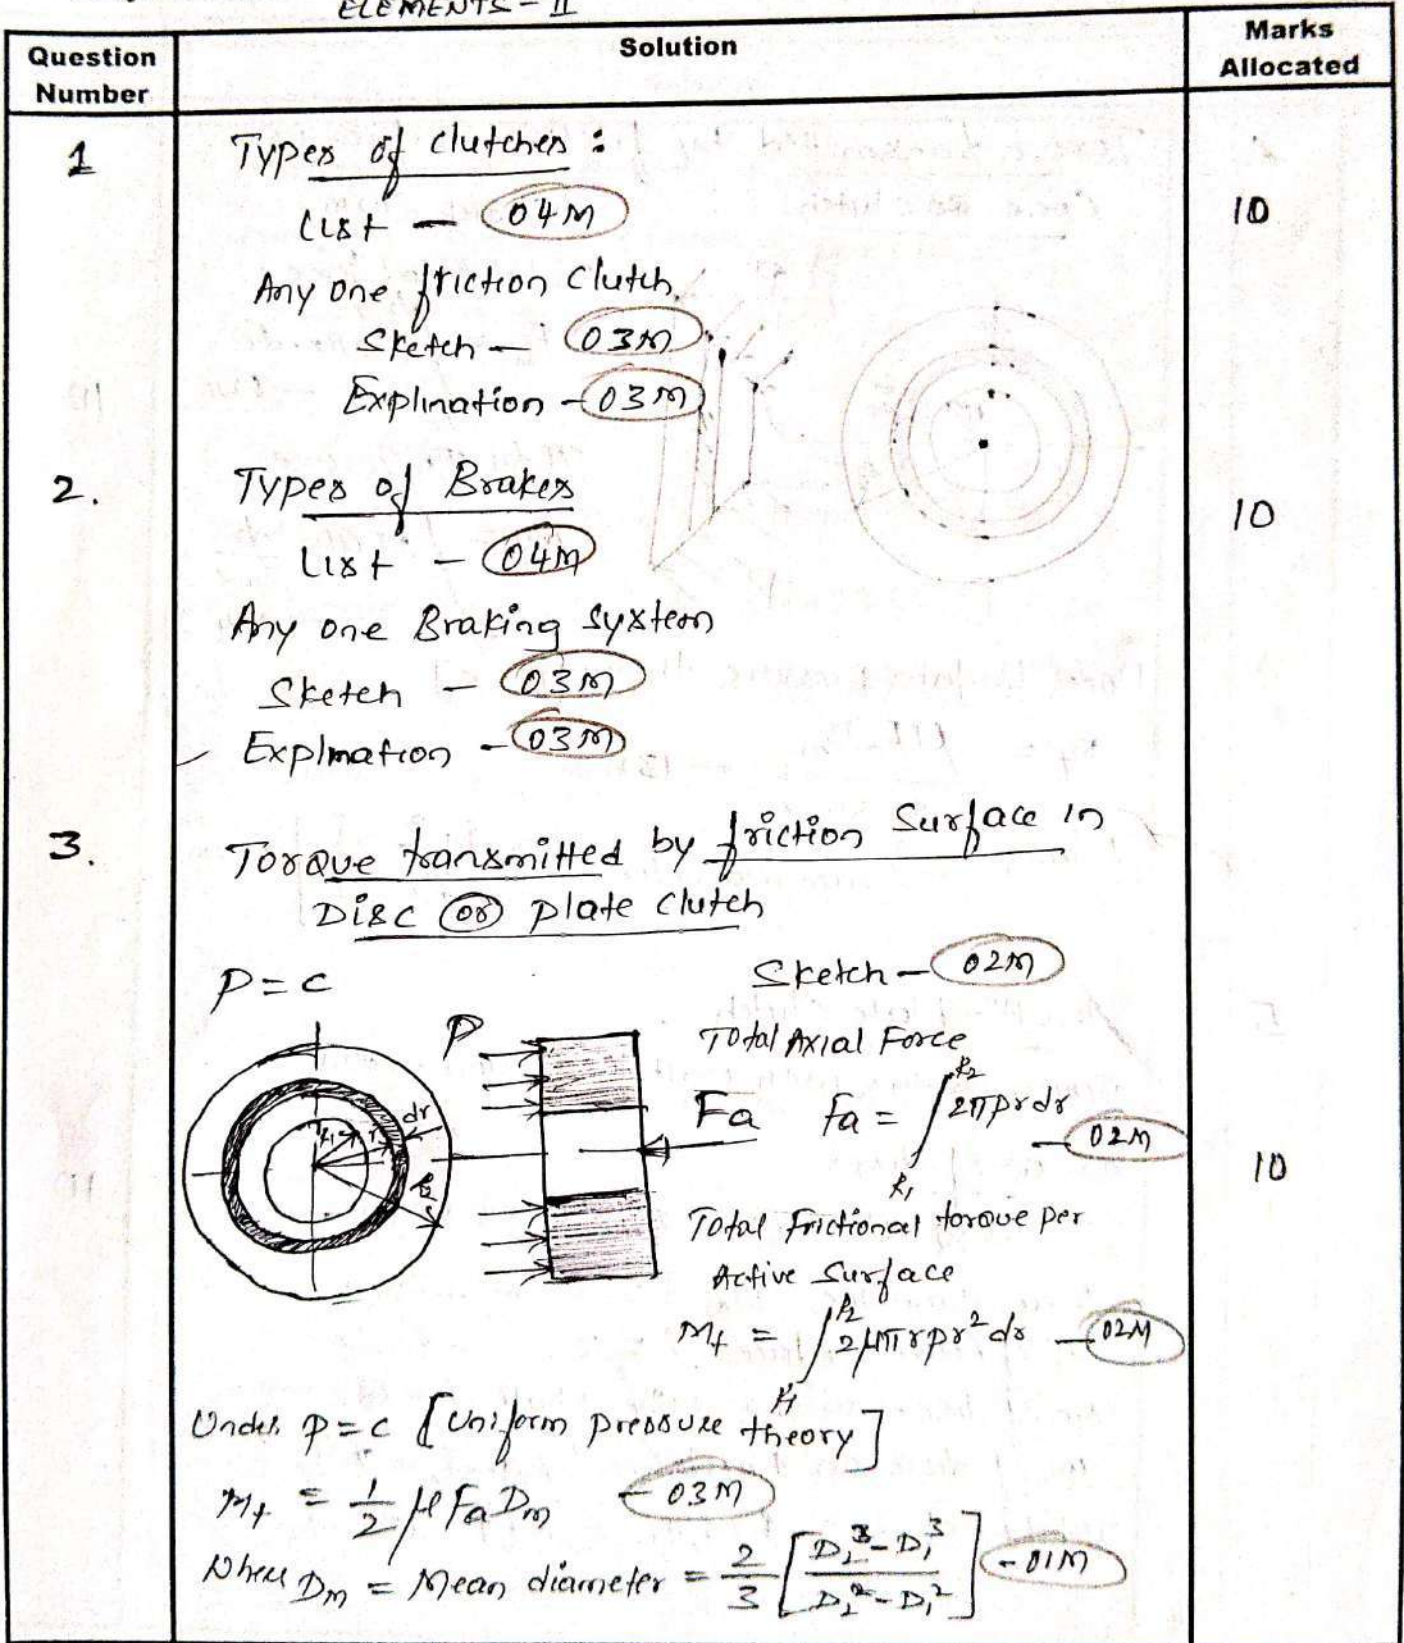 ELEMENTS - II
Question Number
Solution
Marks Allocated
1
Types of clutches :
List - 04M
10
Any one friction Clutch.
Sketch - 03M
Explination - 03M
2.
Types of Brakes
10
List - 04M
Any one Braking System
Sketch - 03M
Explination - 03M
3.
Torque transmitted by friction Surface in
Disc or plate clutch
P = c
Sketch - 02M
Total Axial Force
P
dr
r1
r
R2
Fa
Fa = ∫ R1 R2 2πprdr - 02M
10
Total frictional torque per
Active Surface
Mt = ∫ R1 R2 2μπrpr² dr - 02M
Under P = c [Uniform pressure theory]
Mt = 1/2 μ Fa Dm - 03M
Where Dm = Mean diameter = 2/3 [D2³ - D1³ / D2² - D1²] - 01M